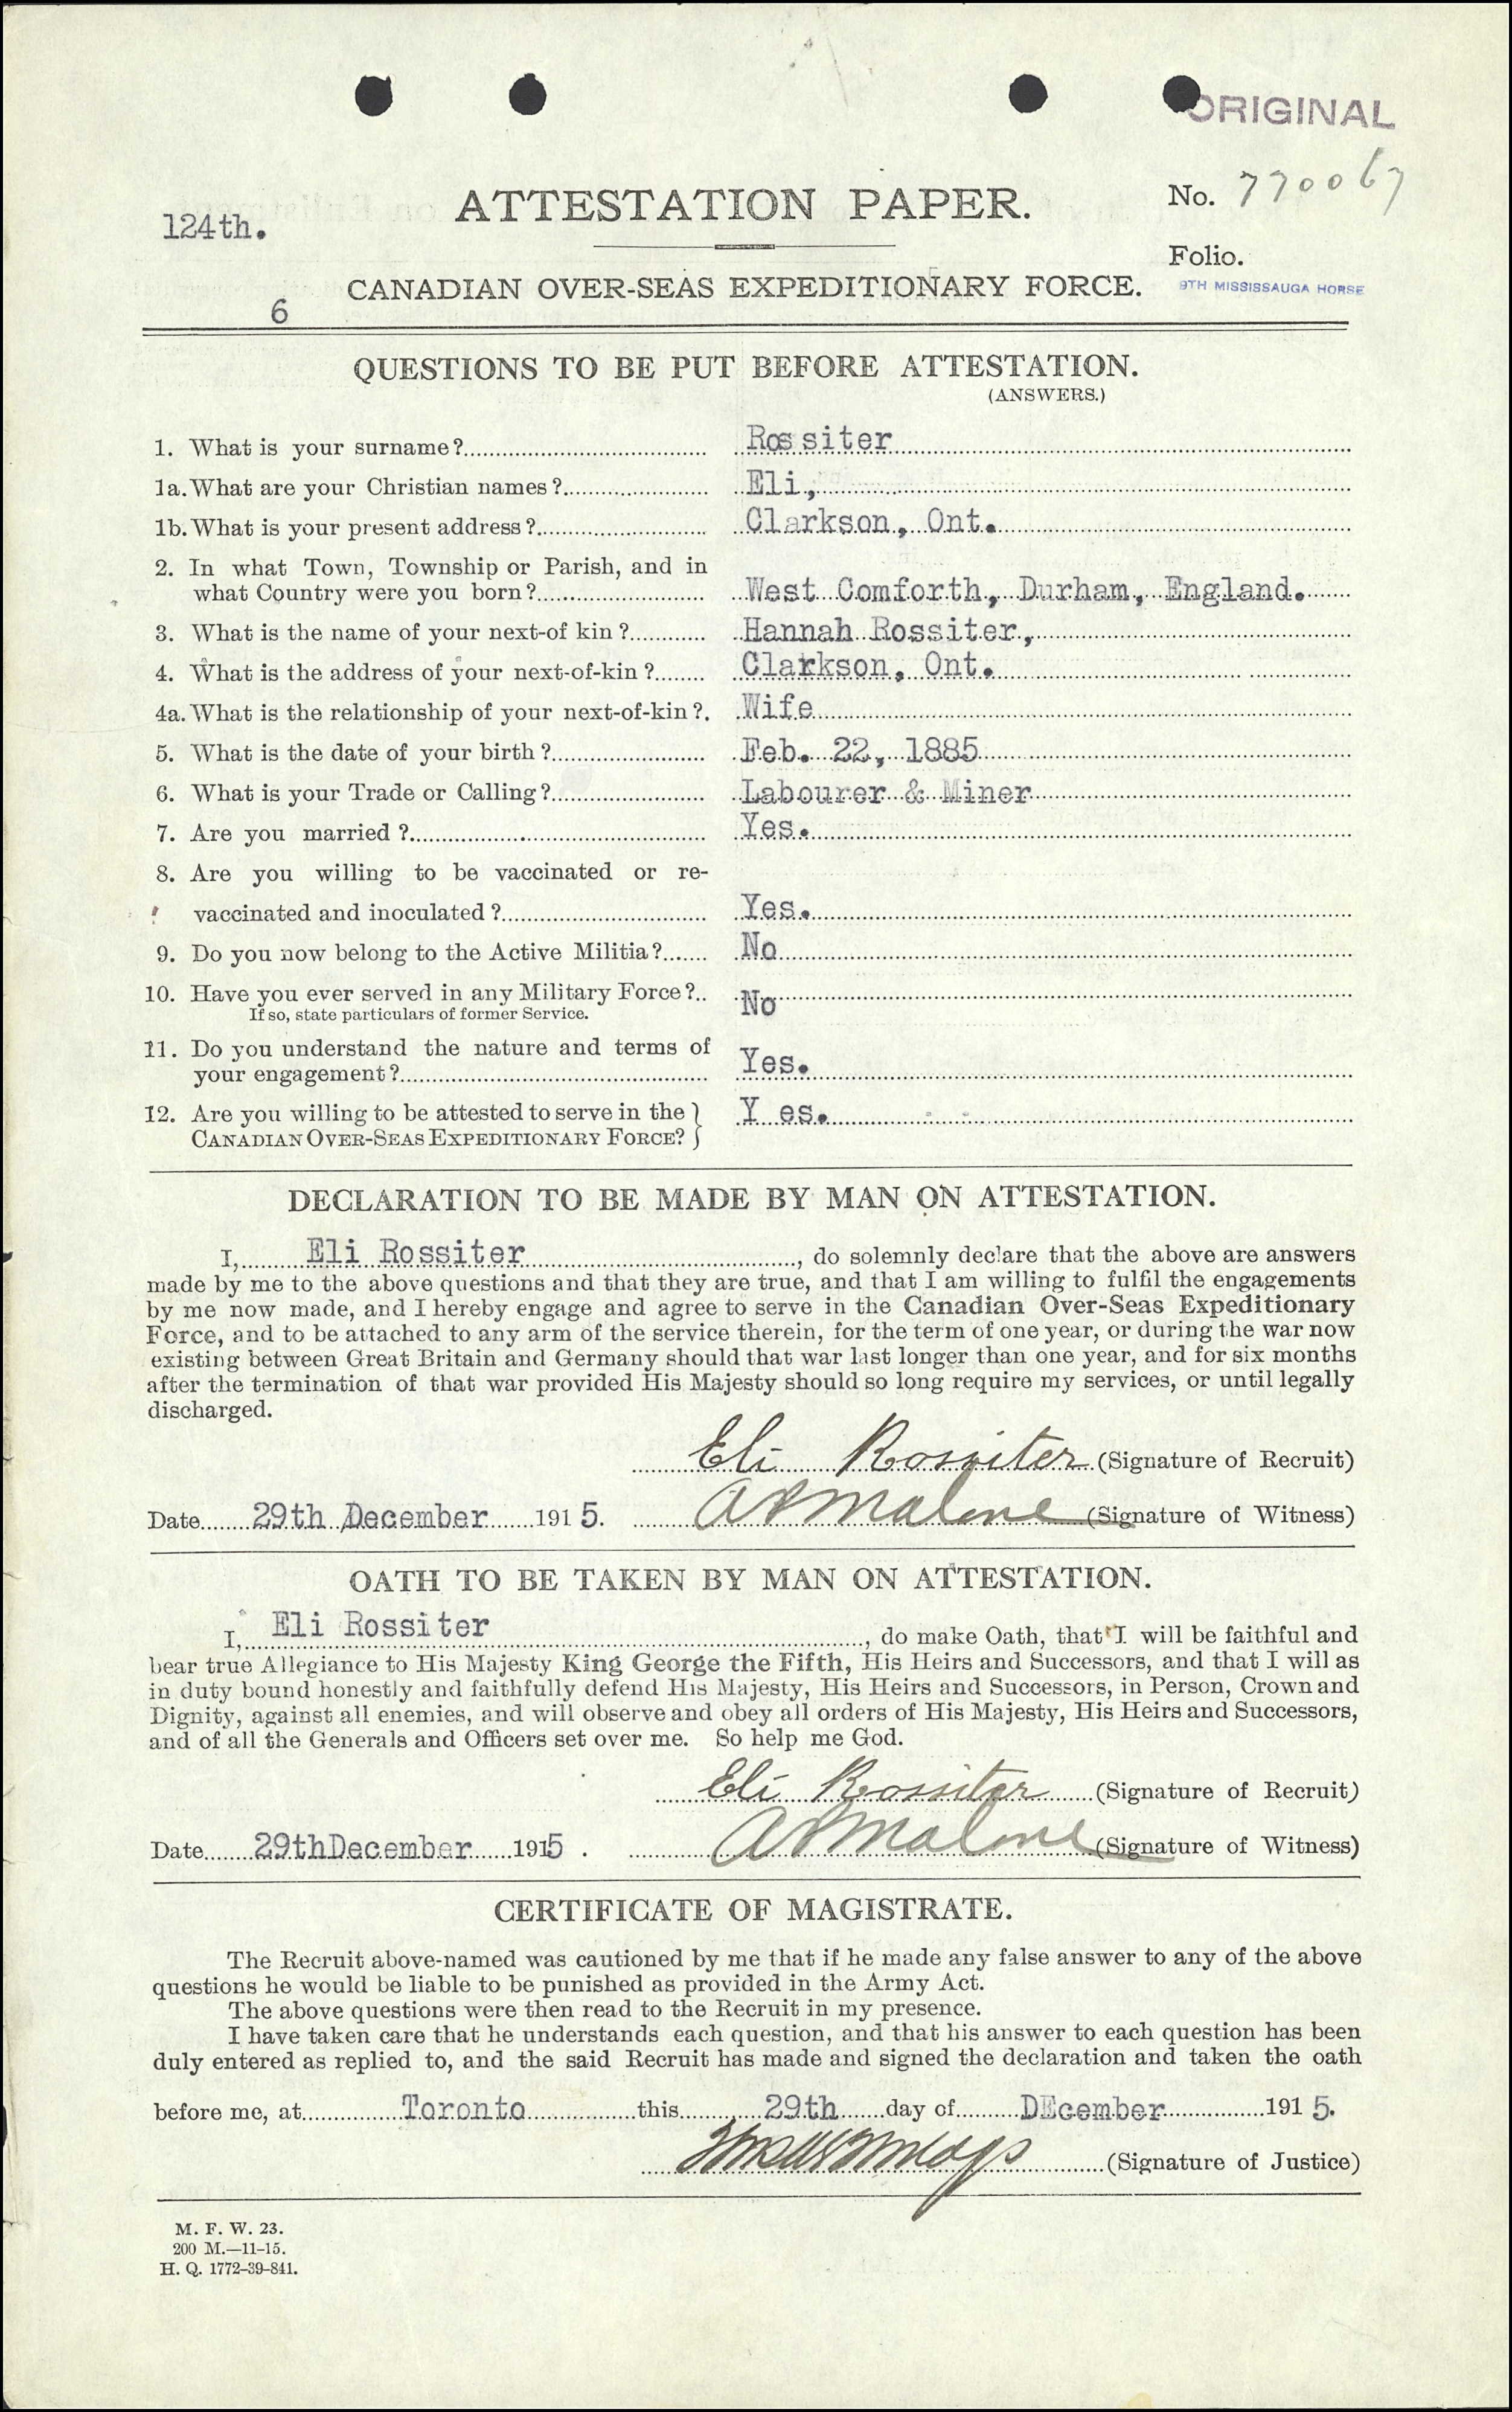 ORIGINAL
124th.
ATTESTATION PAPER.
No. 770067
Folio.
CANADIAN OVER-SEAS EXPEDITIONARY FORCE.
9TH MISSISSAUGA HORSE
6
QUESTIONS TO BE PUT BEFORE ATTESTATION.
(ANSWERS.)
1. What is your surname? Rossiter
1a. What are your Christian names? Eli,
1b. What is your present address? Clarkson, Ont.
2. In what Town, Township or Parish, and in
what Country were you born? West Comforth, Durham, England.
3. What is the name of your next-of kin? Hannah Rossiter,
4. What is the address of your next-of-kin? Clarkson, Ont.
4a. What is the relationship of your next-of-kin? Wife
5. What is the date of your birth? Feb. 22, 1885
6. What is your Trade or Calling? Labourer & Miner
7. Are you married? Yes.
8. Are you willing to be vaccinated or re-
vaccinated and inoculated? Yes.
9. Do you now belong to the Active Militia? No
10. Have you ever served in any Military Force? No
If so, state particulars of former Service.
11. Do you understand the nature and terms of
your engagement? Yes.
12. Are you willing to be attested to serve in the Y es.
CANADIAN OVER-SEAS EXPEDITIONARY FORCE?
DECLARATION TO BE MADE BY MAN ON ATTESTATION.
I, Eli Rossiter, do solemnly declare that the above are answers
made by me to the above questions and that they are true, and that I am willing to fulfil the engagements
by me now made, and I hereby engage and agree to serve in the Canadian Over-Seas Expeditionary
Force, and to be attached to any arm of the service therein, for the term of one year, or during the war now
existing between Great Britain and Germany should that war last longer than one year, and for six months
after the termination of that war provided His Majesty should so long require my services, or until legally
discharged.
Eli Rossiter (Signature of Recruit)
Date 29th December 1915. Malone (Signature of Witness)
OATH TO BE TAKEN BY MAN ON ATTESTATION.
I, Eli Rossiter, do make Oath, that I will be faithful and
bear true Allegiance to His Majesty King George the Fifth, His Heirs and Successors, and that I will as
in duty bound honestly and faithfully defend His Majesty, His Heirs and Successors, in Person, Crown and
Dignity, against all enemies, and will observe and obey all orders of His Majesty, His Heirs and Successors,
and of all the Generals and Officers set over me. So help me God.
Eli Rossiter (Signature of Recruit)
Date 29thDecember 1915. Malone (Signature of Witness)
CERTIFICATE OF MAGISTRATE.
The Recruit above-named was cautioned by me that if he made any false answer to any of the above
questions he would be liable to be punished as provided in the Army Act.
The above questions were then read to the Recruit in my presence.
I have taken care that he understands each question, and that his answer to each question has been
duly entered as replied to, and the said Recruit has made and signed the declaration and taken the oath
before me, at Toronto this 29th day of DEcember 1915.
(Signature of Justice)
M. F. W. 23.
200 M.—11-15.
H. Q. 1772-39-841.